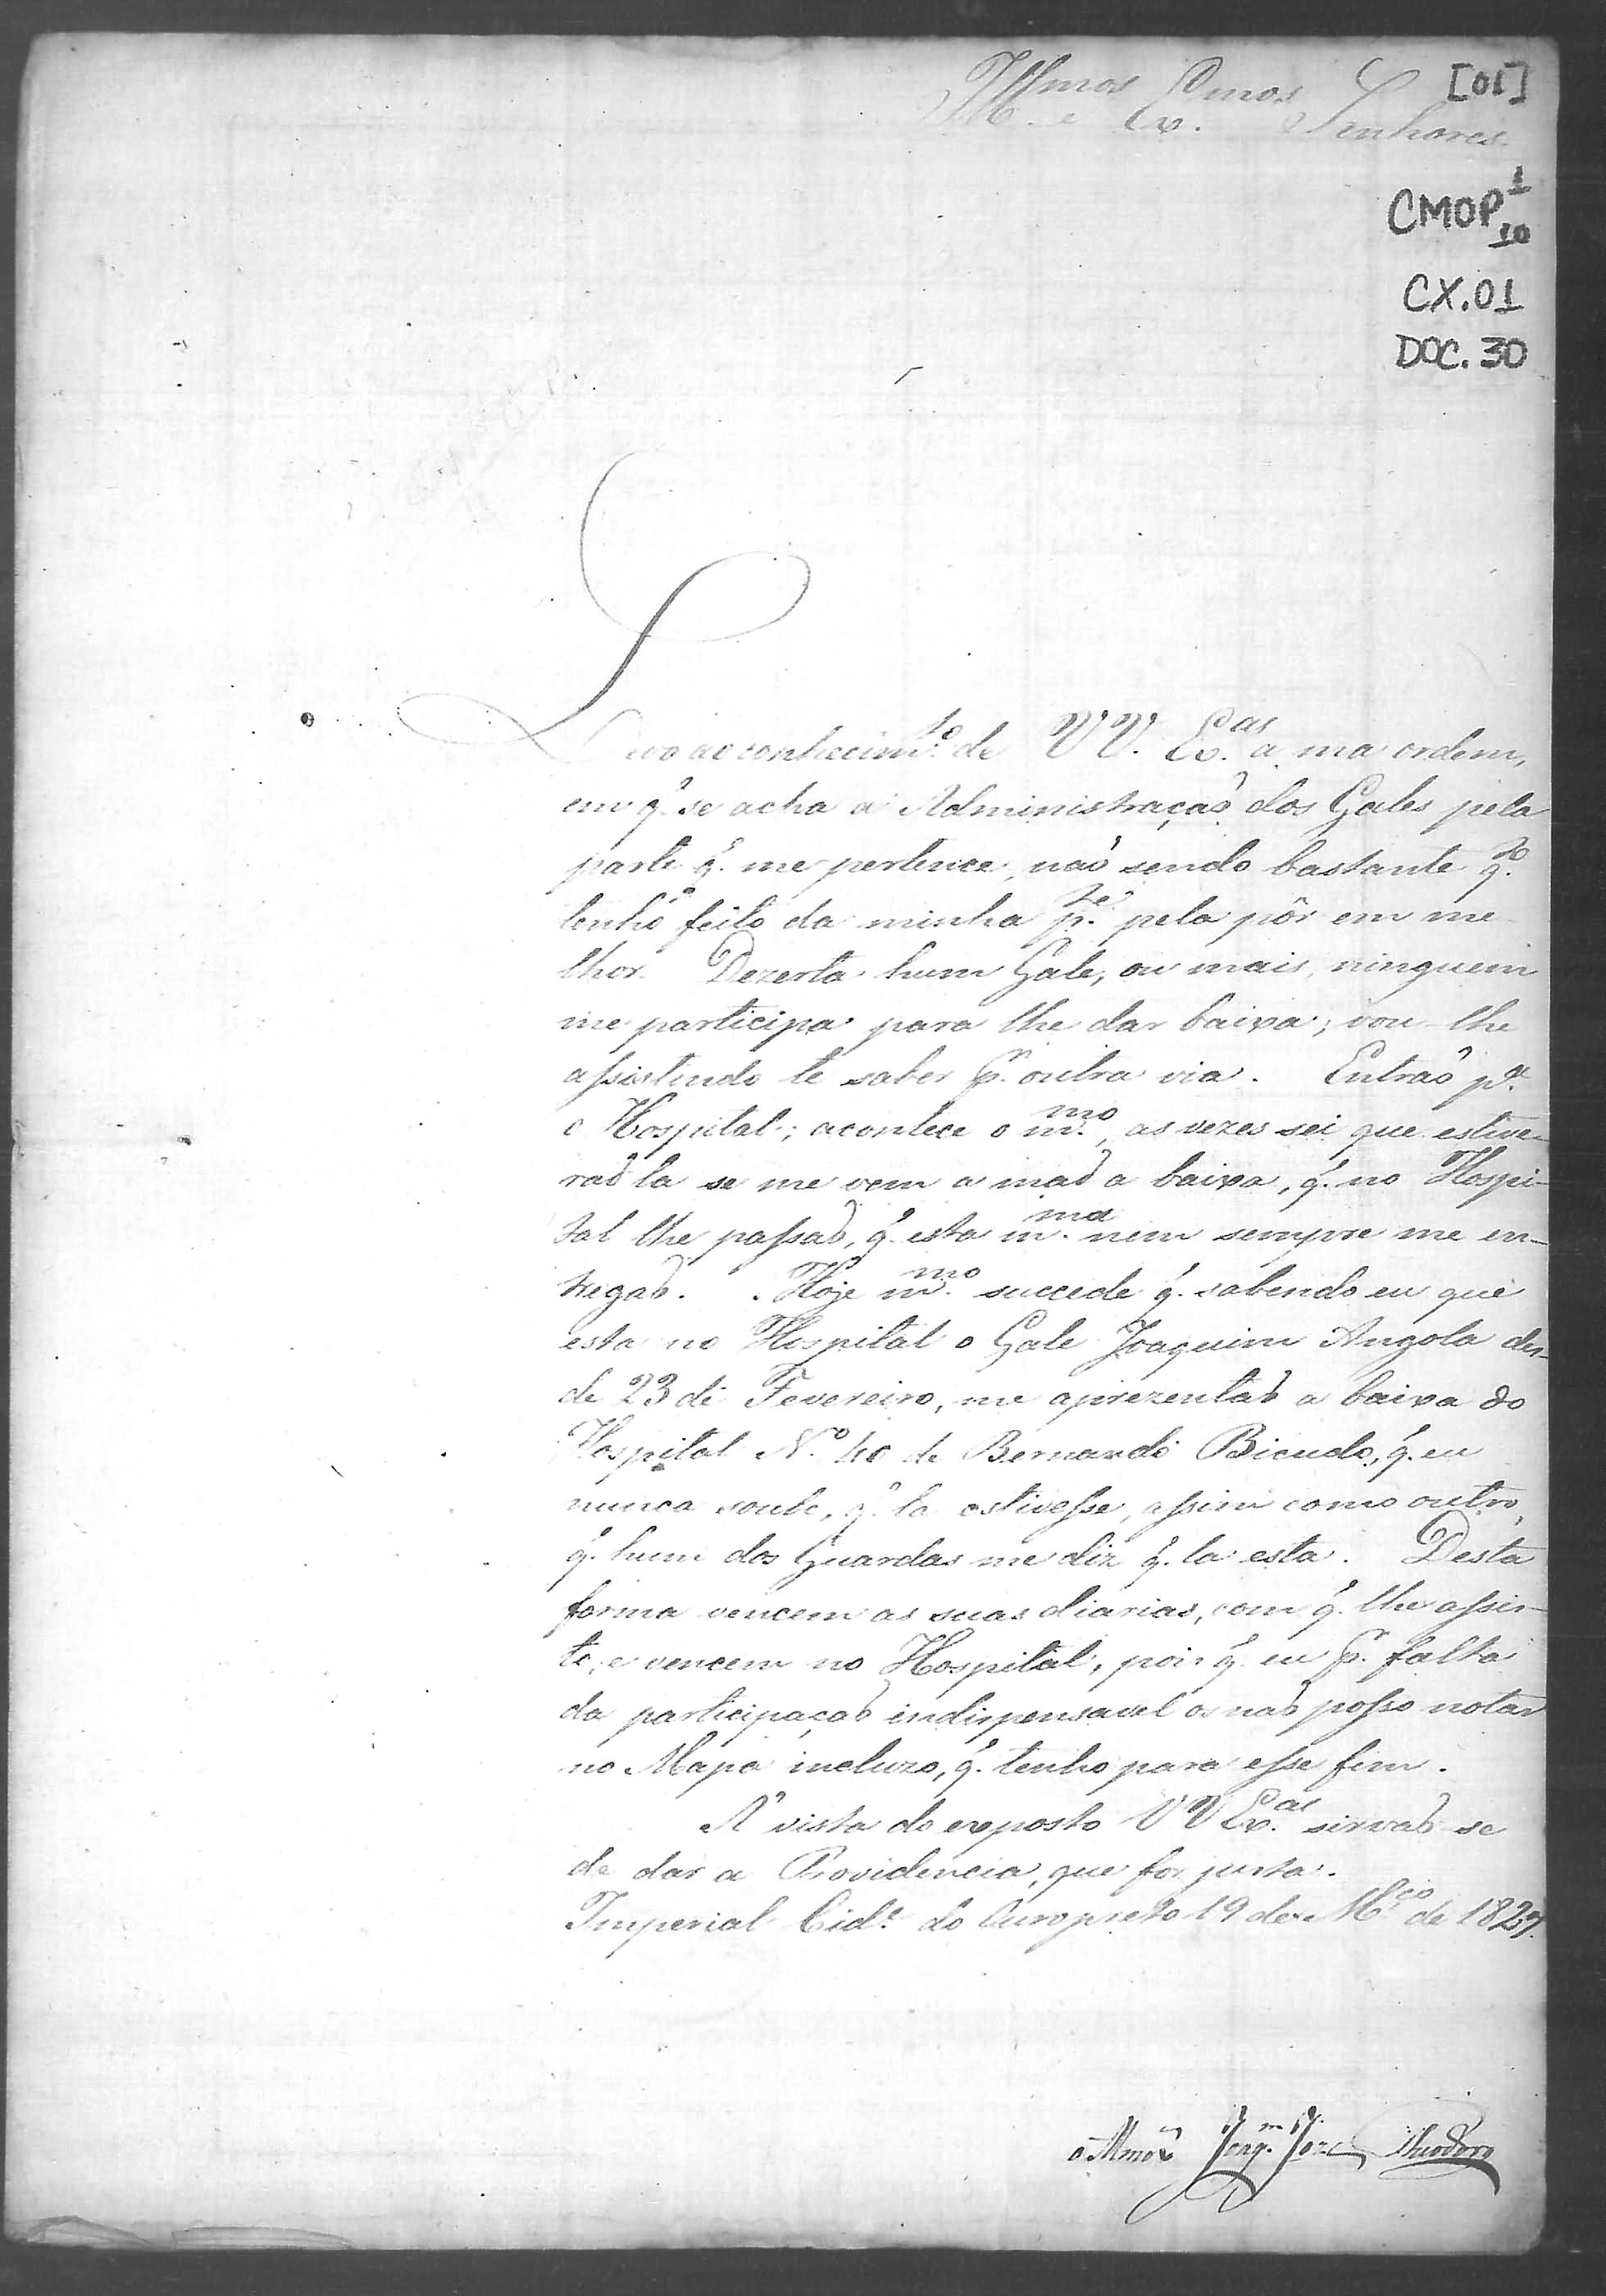 [01]
Ill.mos e Ex.mos Senhores
CMOP 1
10
CX.01
DOC. 30
Levo ao conhecim.to de VV. Ex.as a má ordem,
em q̃ se acha a Administração dos Gales pela
parte q̃. me pertence, não sendo bastante q.to
tenho feito da minha p.te pela pôr em me
lhor. Dezerta hum Gale, ou mais, ninguem
me participa para lhe dar baixa; vou lhe
assistindo te saber p.r outra via. Entrão p.a
o Hospital; acontece o m.mo, as vezes sei que estive-
rão la se me vem a mão a baixa, q̃. no Hospi-
tal lhe passão, q̃. esta m.ma nem sempre me en-
tregão. Hoje m.mo succede q̃. sabendo eu que
esta no Hospital o Gale Joaquim Angola des-
de 23 de Fevereiro, me aprezentão a baixa do
Hospital N.o 40 de Bernardo Bicudo, q̃. eu
nunca soube, q̃. la estivesse, assim como outro,
q̃. hum dos Guardas me diz q̃. la esta. Desta
forma vencem as suas diarias, com q̃. lhe assis-
to, e vencem no Hospital, pois q̃. eu p.r falta
da participação indispensavel os não posso notar
no Mapa incluzo, q̃. tenho para esse fim.
A' vista do exposto VV Ex.as sirvão se
de dar a Providencia, que for justa.
Imperial Cid.e do Ouro preto 19 de M.ço de 1827.
o Almox.e Joaq.m Joze Theodoro